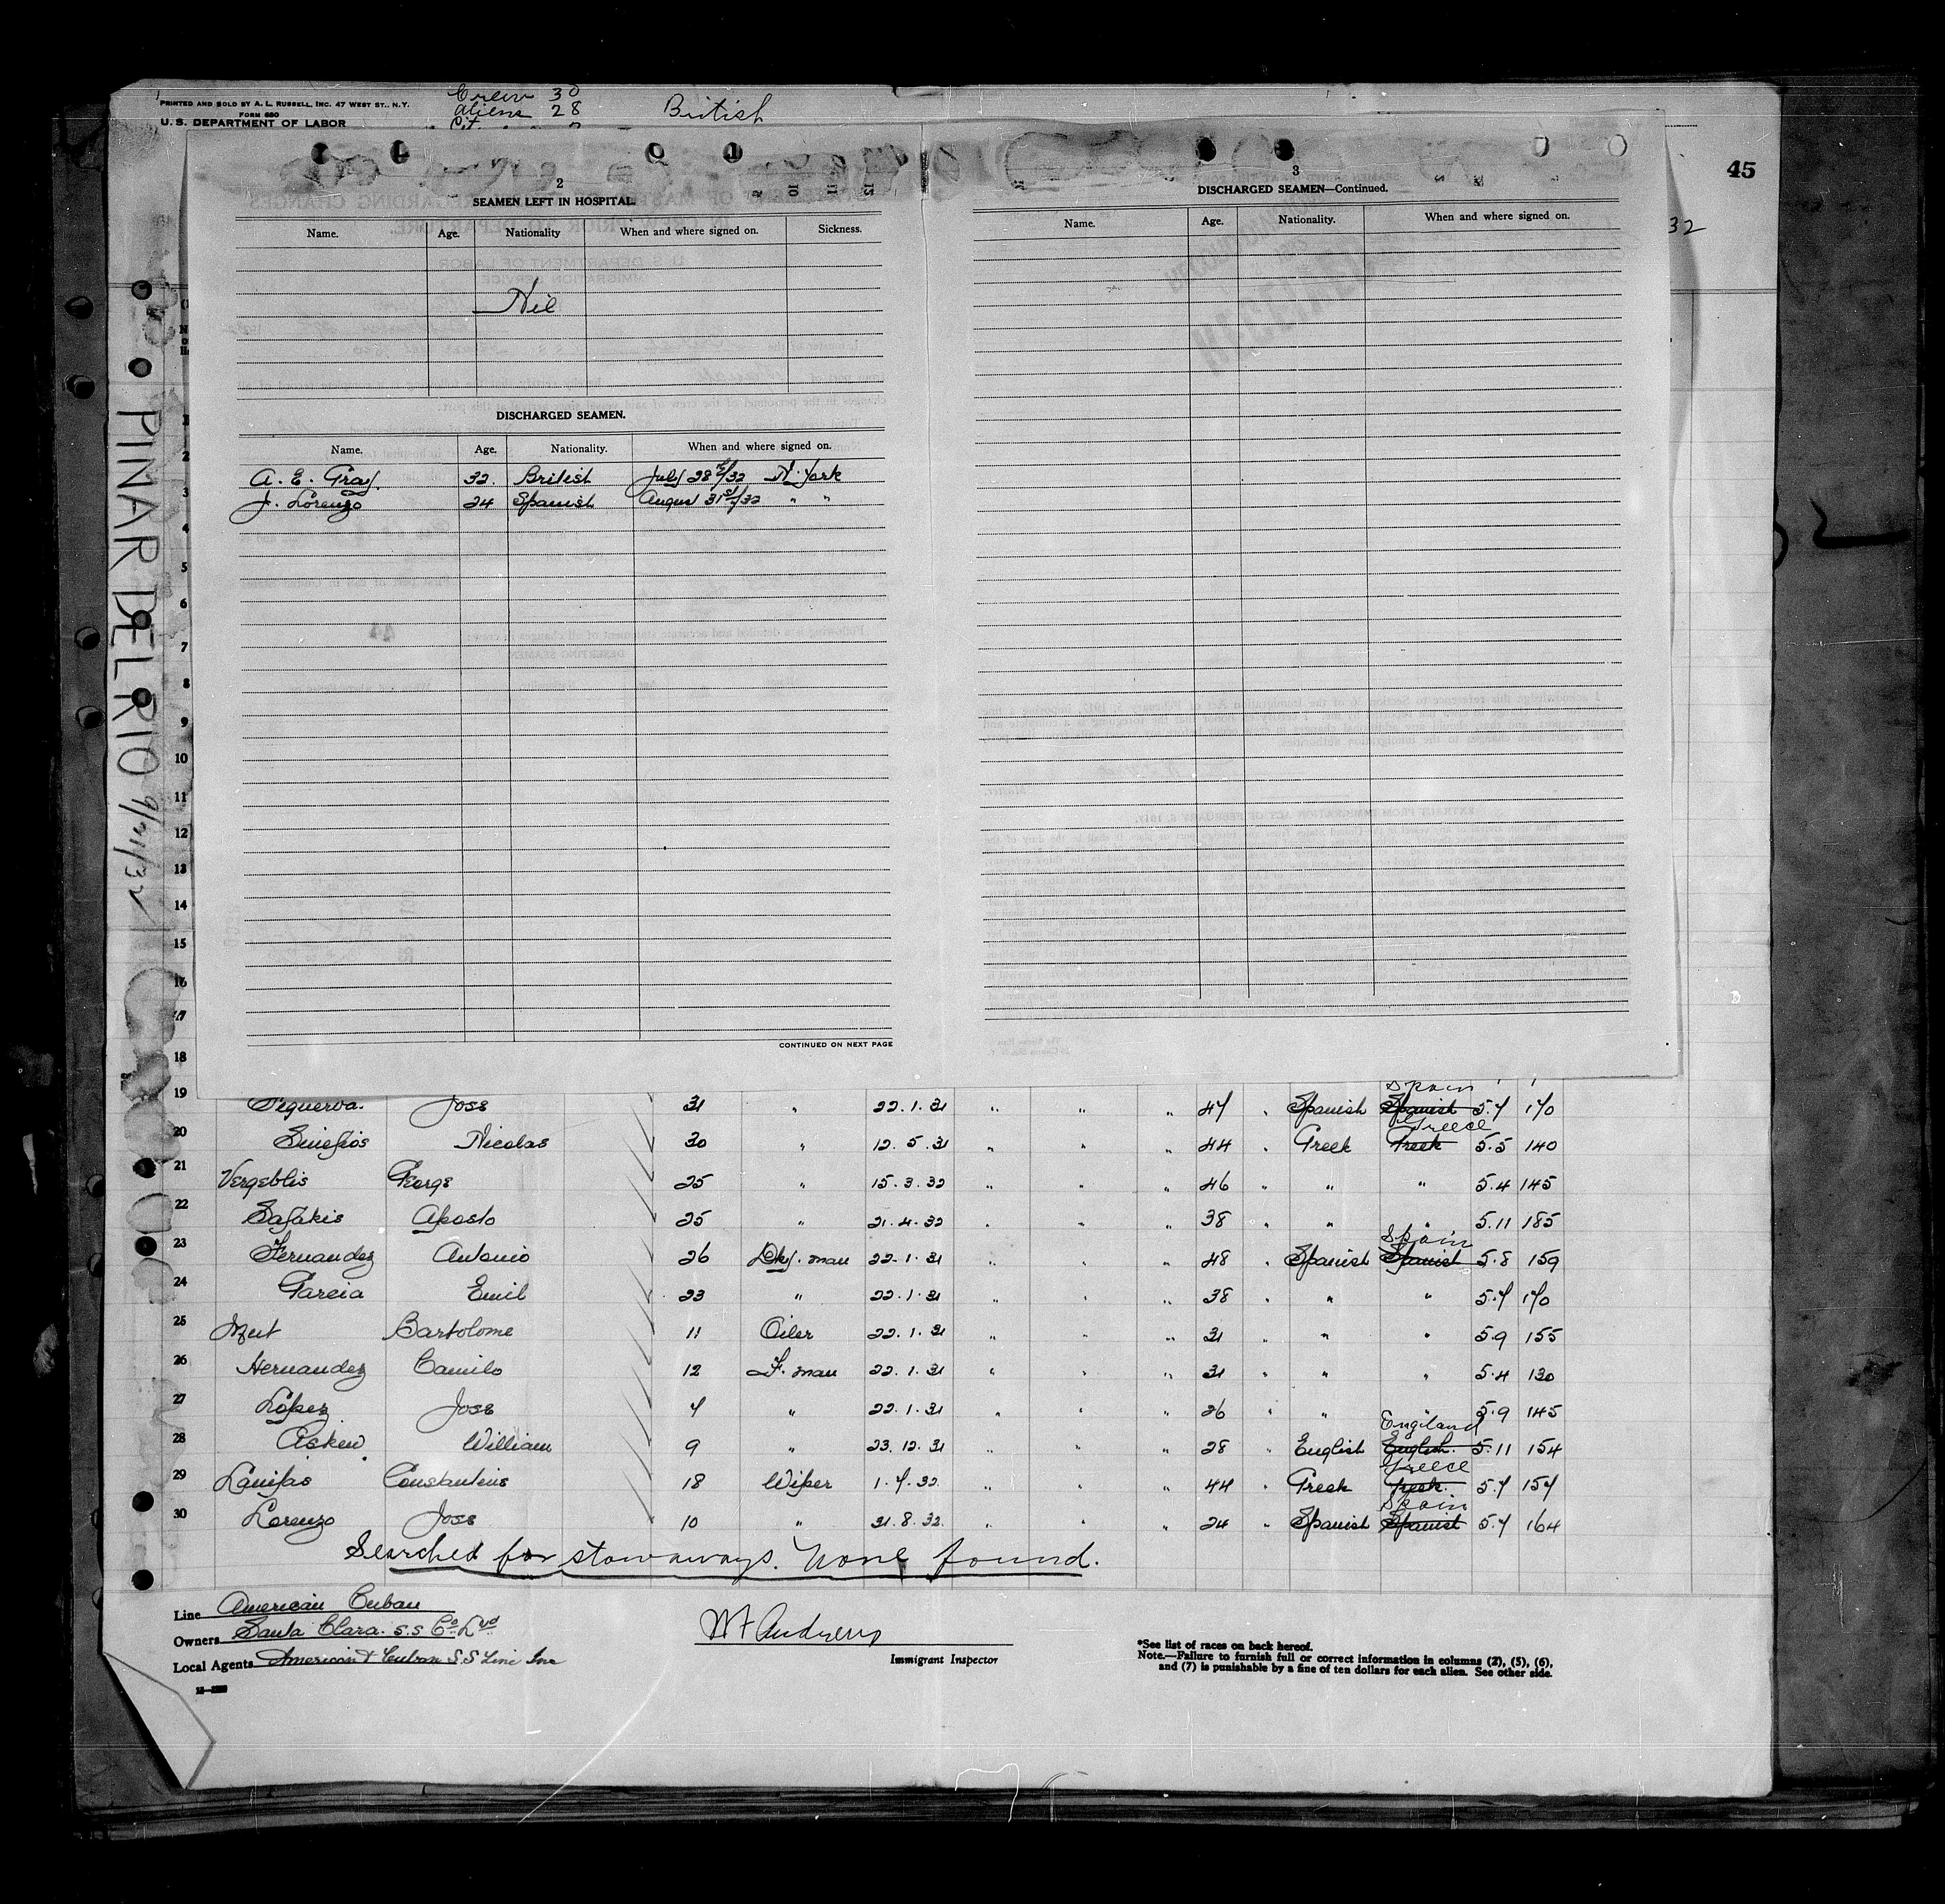 PRINTED AND SOLD BY A. L. RUSSELL, INC. 47 WEST ST., N.Y.
FORM 680
U. S. DEPARTMENT OF LABOR
Crew 30
Aliens 28
British
45
32
PINAR DEL RIO 9/21/32
2
SEAMEN LEFT IN HOSPITAL.
Name. Age. Nationality When and where signed on. Sickness.
Nil
DISCHARGED SEAMEN.
Name. Age. Nationality. When and where signed on.
A. E. Gray. 32. British July 28th/32 N. York
J. Lorenzo 24 Spanish Augus 31st/32 " "
CONTINUED ON NEXT PAGE
3
DISCHARGED SEAMEN—Continued.
Name. Age. Nationality. When and where signed on.
1
2
3
4
5
6
7
8
9
10
11
12
13
14
15
16
17
18
19 Figuerva. Jose 31 " 22.1.31 " " " 47 " Spanish Spanish Spain 5.7 170
20 Nicolas 30 " 12.5.31 " " " 44 " Greek Greek Greece 5.5 140
21 Vergeblis George 25 " 15.3.32 " " " 46 " " " 5.4 145
22 Safakis Aposto 25 " 21.4.32 " " " 38 " " " 5.11 185
23 Fernandez Antonio 26 Dky. man 22.1.31 " " " 48 " Spanish Spanish Spain 5.8 159
24 Garcia Emil 23 " 22.1.31 " " " 38 " " " 5.7 170
25 Bartolome 11 Oiler 22.1.31 " " " 31 " " " 5.9 155
26 Hernandez Camilo 12 F. man 22.1.31 " " " 31 " " " 5.4 130
27 López Jose 7 " 22.1.31 " " " 26 " " " 5.9 145
28 Askew William 9 " 23.12.31 " " " 28 " English English England 5.11 154
29 Constantinis 18 Wiper 1.7.32. " " " 44 " Greek Greek Greece 5.7 157
30 Lorenzo Jose 10 " 31.8.32. " " " 24 " Spanish Spanish Spain 5.7 164
Searched for stowaways. None found.
Line American Cuban
Owners Santa Clara. S.S Co. Ltd
Local Agents American & Cuban S.S Line Inc
W F Andrews
Immigrant Inspector
*See list of races on back hereof.
Note.—Failure to furnish full or correct information in columns (2), (5), (6),
and (7) is punishable by a fine of ten dollars for each alien. See other side.